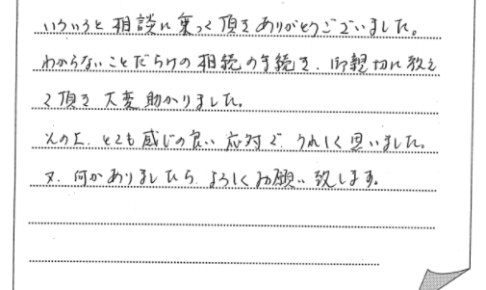 いろいろと相談に乗って頂きありがとうございました。
わからないことだらけの相続の手続き、御親切に教え
て頂き大変助かりました。
その上、とても感じの良い応対で、うれしく思いました。
又、何かありましたら、よろしくお願い致します。